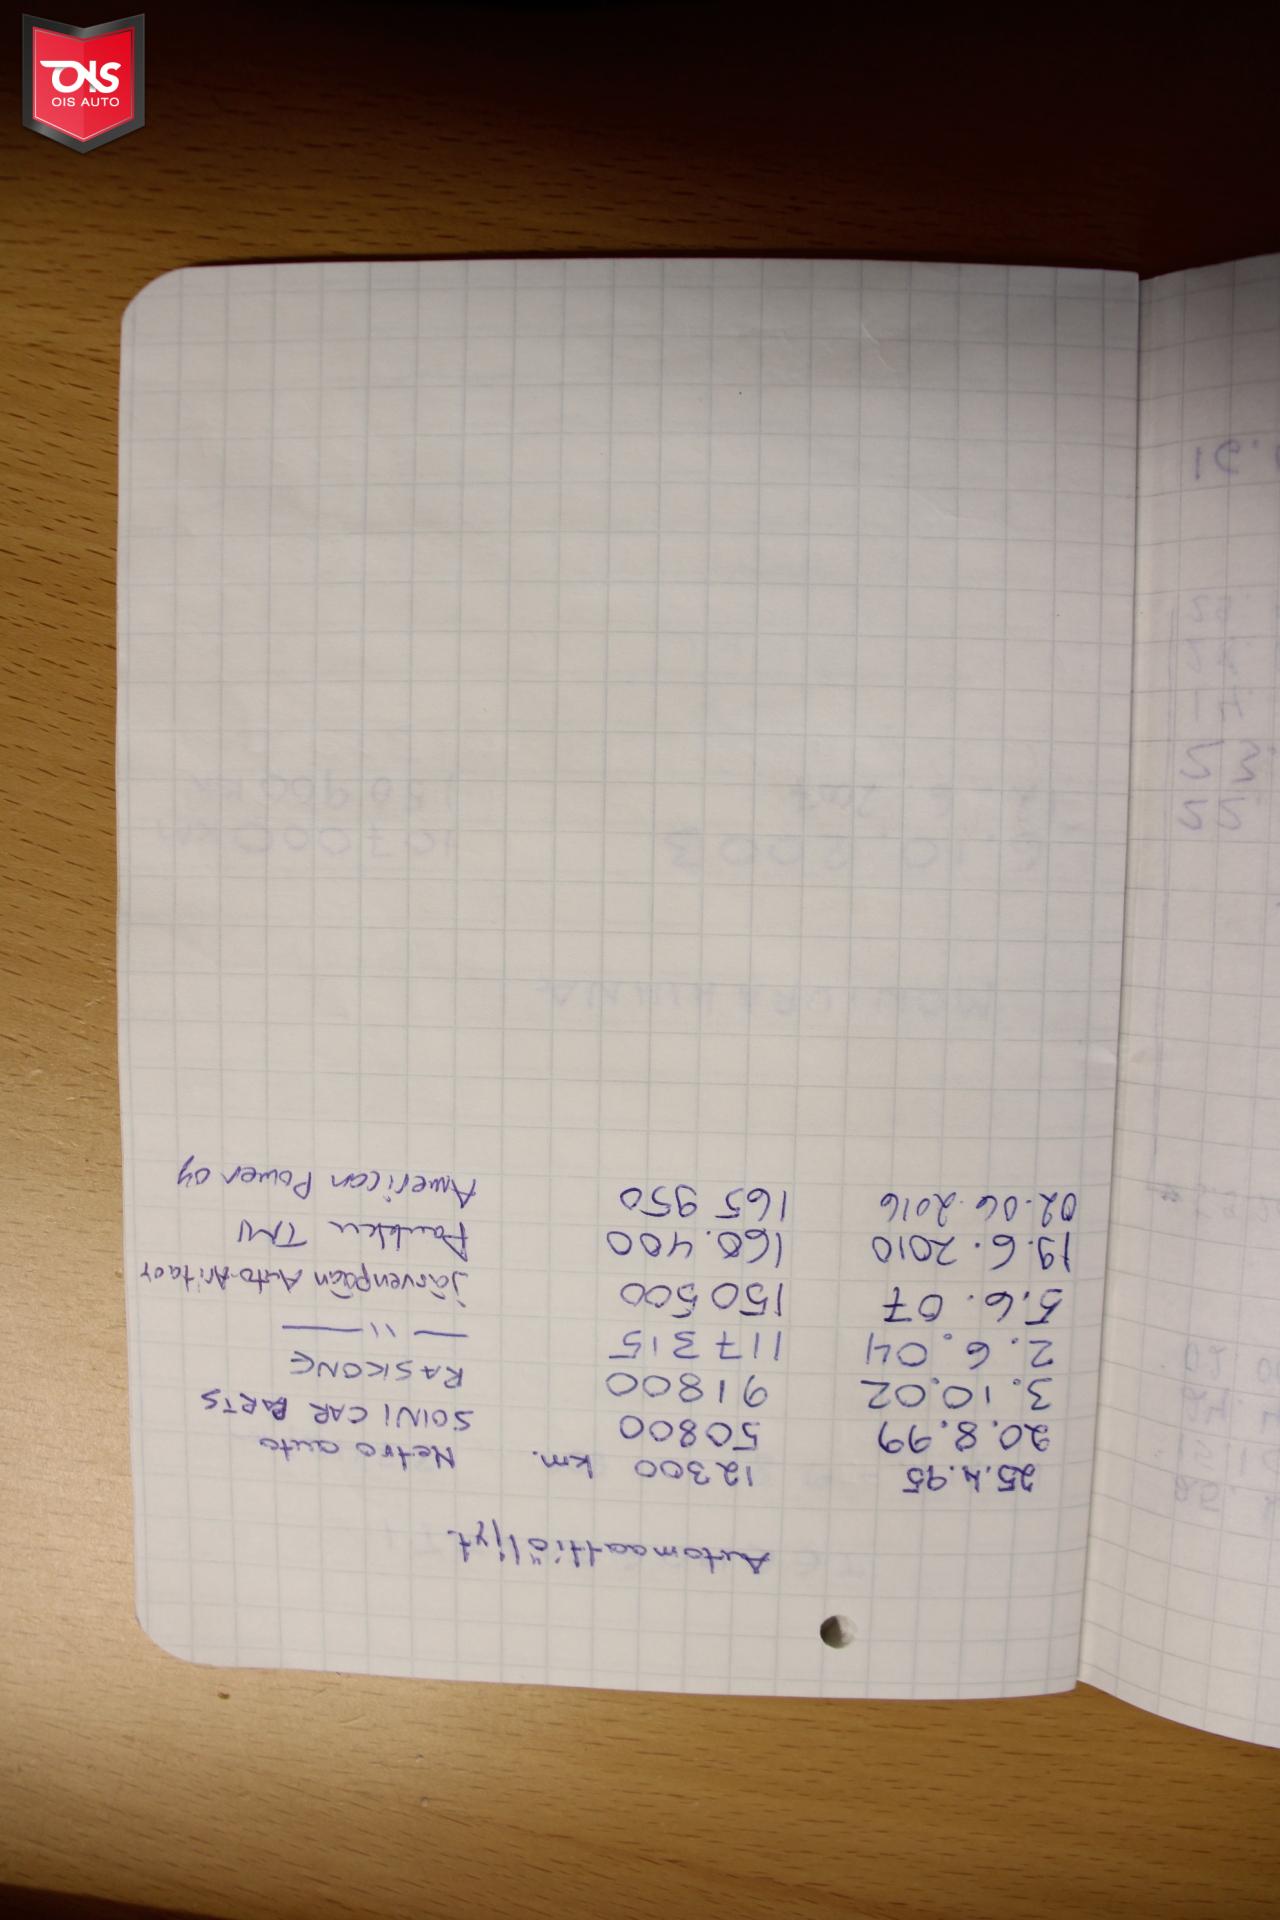 OIS
OIS AUTO
Automaattiöljyt.
25.4.95 12300 km. Netro auto
20.8.99 50800 SOINI CAR PARTS
3.10.02 91800 RASKONE
2.6.04 117315 — 〃 —
5.6.07 150500 Järvenpään Auto-Aritaor
19.6.2010 160.400 TMU
02.06.2016 165 950 American Power oy